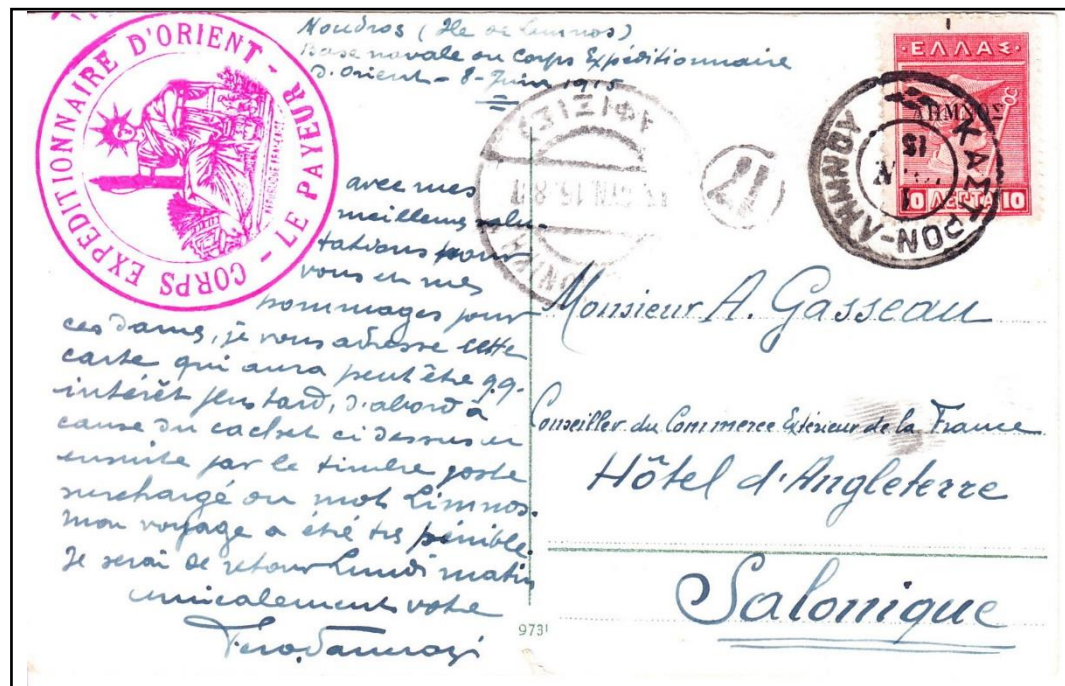 CORPS EXPEDITIONNAIRE D'ORIENT - LE PAYEUR -
REPUBLIQUE FRANÇAISE
Moudros (Ile de Limnos)
Base navale du Corps Expéditionnaire
d'Orient - 8 - Juin 1915
avec mes
meilleures salu-
tations pour
vous et mes
hommages pour
ces dames, je vous adresse cette
carte qui aura peut être qq.
intérêt plus tard, d'abord à
cause du cachet ci dessus et
ensuite par le timbre poste
surchargé du mot Limnos.
Mon voyage a été très pénible.
Je serai de retour Lundi matin
amicalement votre
ΕΛΛΑΣ
ΛΗΜΝΟΣ
10 ΛΕΠΤΑ 10
ΚΑΣΤΡΟΝ-ΛΗΜΝΟΥ
15
ΑΦΙΞΙΣ
17
Monsieur A. Gasseau
Conseiller du Commerce Extérieur de la France
Hôtel d'Angleterre
Salonique
9731